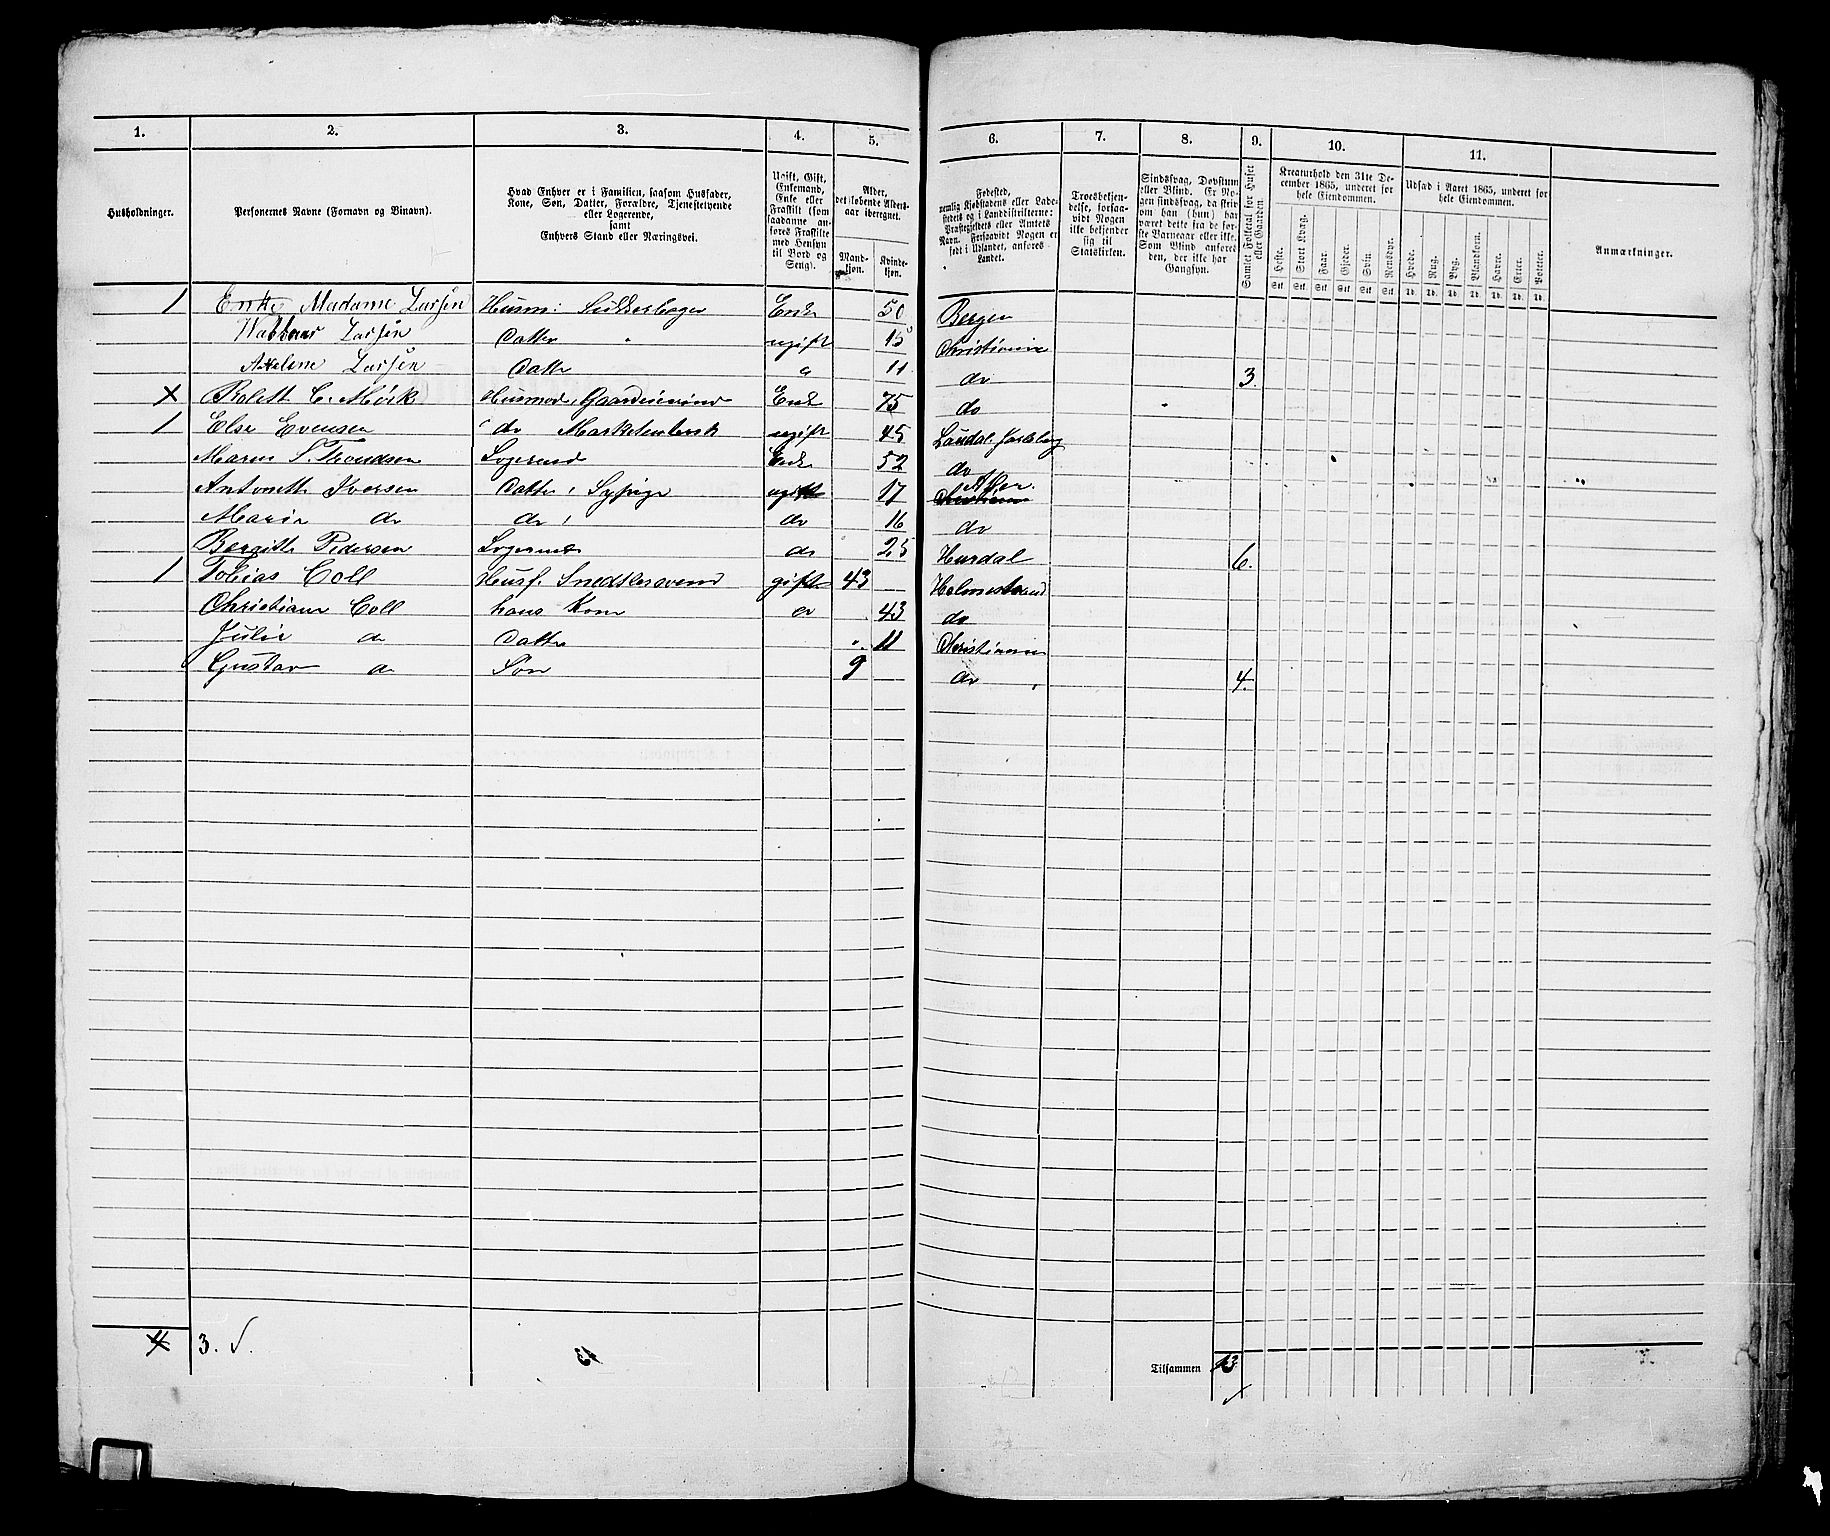 1. 2. 3. 4. 5. 6. 7. 8. 9. 10. 11.
Husholdninger.
Personernes Navne (Fornavn og Binavn).
Hvad Enhver er i Familien, saasom Husfader,
Kone, Søn, Datter, Forældre, Tjenestetyende
eller Logerende,
samt
Enhvers Stand eller Næringsvei.
Ugift, Gift,
Enkemand,
Enke eller
Fraskilt (som
saadanne an-
føres Fraskilte
med Hensyn
til Bord og
Seng).
Alder,
det løbende Alders-
aar iberegnet.
Mand-
kjøn.
Kvinde-
kjøn.
Fødested,
nemlig Kjøbstadens eller Lade-
stedets og i Landdistrikterne:
Præstegjeldets eller Amtets
Navn. Forsaavidt Nogen er
født i Udlandet, anføres
Landet.
Troesbekjen-
delse, forsaa-
vidt Nogen
ikke bekjender
sig til
Statskirken.
Sindssvag, Døvstum
eller Blind. Er No-
gen sindssvag, da skriv
om han (hun) har
været dette fra de før-
ste Barneaar eller ikke.
Som Blind anføres
den, der ikke har
Gangsyn.
Samlet Folketal for Huset
eller Gaarden.
Kreaturhold den 31te De-
cember 1865, underet for
hele Eiendommen.
Heste. Stort Kvæg. Faar. Gjeder. Svin. Rensdyr.
Stk. Stk. Stk. Stk. Stk. Stk.
Udsæd i Aaret 1865, underet for
hele Eiendommen.
Hvede. Rug. Byg. Blandkorn. Havre. Erter. Poteter.
Td. Td. Td. Td. Td. Td. Td.
Anmærkninger.
1 Enke Madame Larsen Husm: Sukkerbager Enke 50 Bergen
Larsen Datter ugift 15 Christiania
Larsen Datter 11 do 3.
X C. Mørk Husmod, Enke 75 do
1 Else Evensen do ugift 45 Laurdal Jarlsberg
Maren S. Logerend Enke 52 do
Antonette Iversen Datter, Sypige ugift 17 Christiania Aker.
Marie do do, do 16 do
Bergitte Pedersen Logerende do 25 Hurdal 6.
1 Tobias Coll Husf. Snedkersvend gift 43 Holmestrand
Christiane Coll hans Kone do 43 do
Julie do Datter 11 Christiania
Gustav do Søn 9 do 4.
4 3.
Tilsammen 13